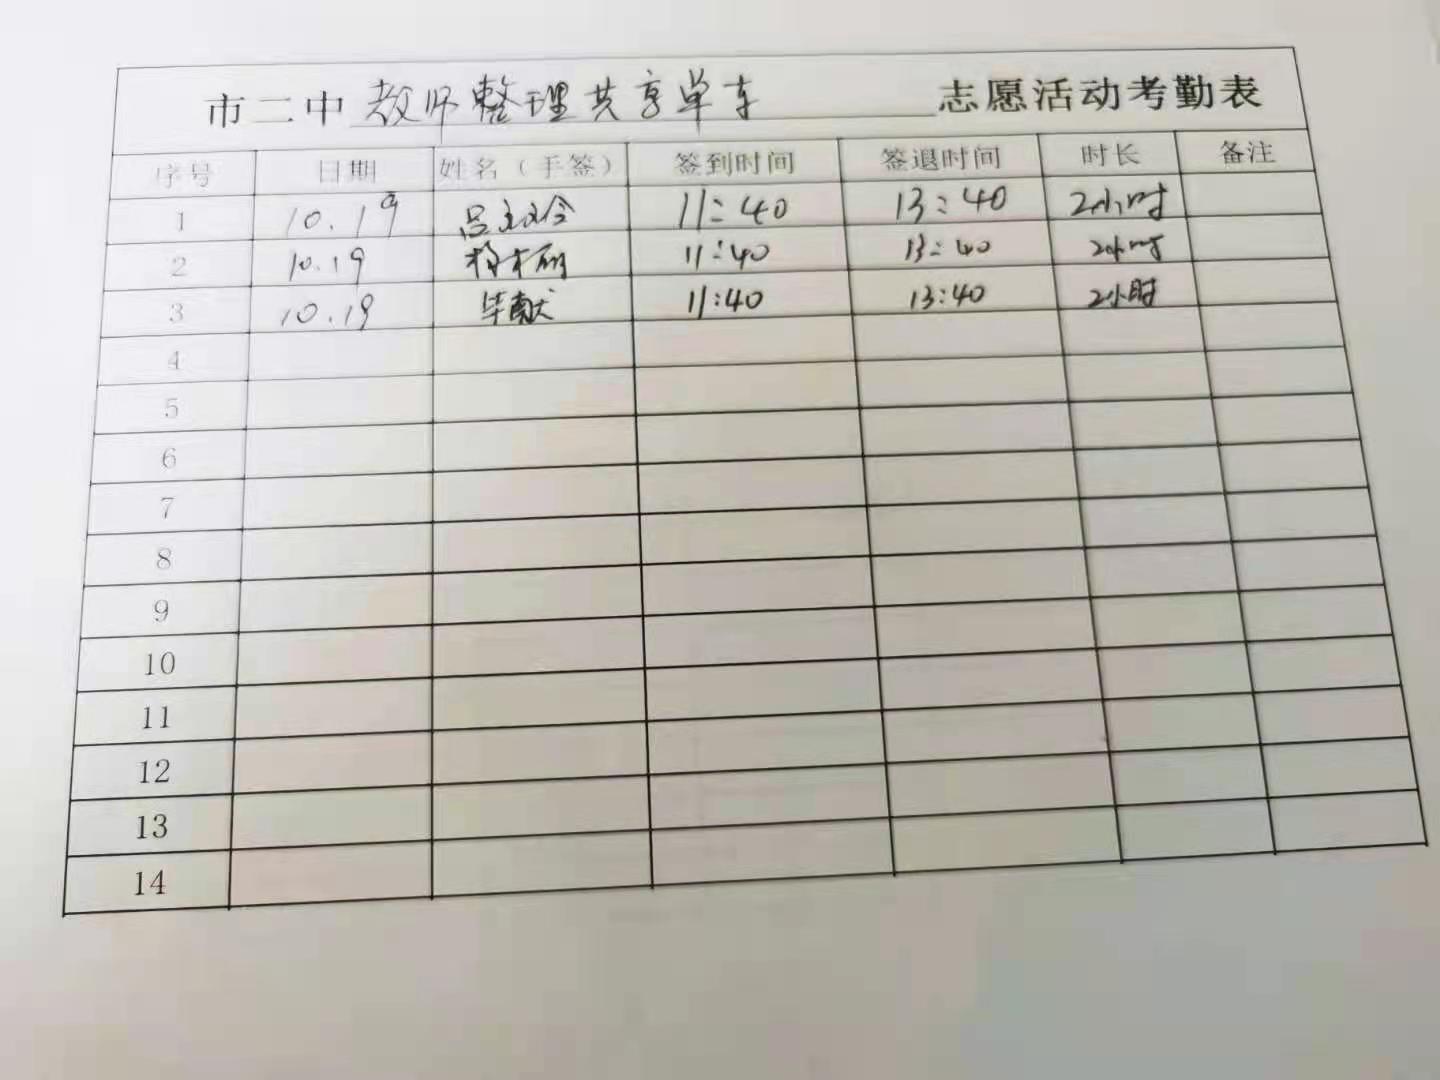 市二中 教师整理共享单车 志愿活动考勤表
序号 日期 姓名（手签） 签到时间 签退时间 时长 备注
1 10.19 吕 11:40 13:40 2小时
2 10.19 11:40 13:40 2小时
3 10.19 毕献 11:40 13:40 2小时
4
5
6
7
8
9
10
11
12
13
14